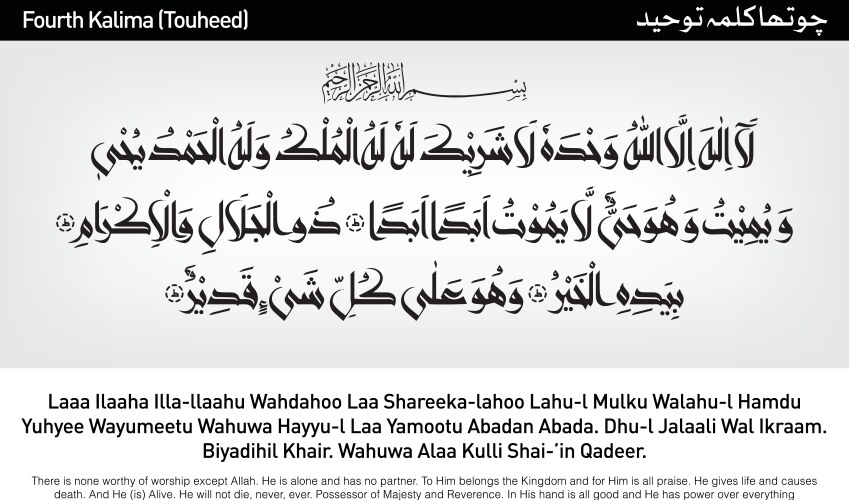 Fourth Kalima (Touheed)
چوتھا کلمہ توحید
بِسْمِ اللهِ الرَّحْمٰنِ الرَّحِيْمِ
لَآ اِلٰهَ اِلَّا اللهُ وَحْدَهٗ لَا شَرِيْكَ لَهٗ لَهُ الْمُلْكُ وَلَهُ الْحَمْدُ يُحْيٖ
وَ يُمِيْتُ وَ هُوَ حَيٌّ لَّا يَمُوْتُ اَبَدًا اَبَدًا ؕ ذُو الْجَلَالِ وَالْاِكْرَامِ ؕ
بِيَدِهِ الْخَيْرُ ؕ وَهُوَ عَلٰى كُلِّ شَیْءٍ قَدِيْرٌ ؕ
Laaa Ilaaha Illa-llaahu Wahdahoo Laa Shareeka-lahoo Lahu-l Mulku Walahu-l Hamdu
Yuhyee Wayumeetu Wahuwa Hayyu-l Laa Yamootu Abadan Abada. Dhu-l Jalaali Wal Ikraam.
Biyadihil Khair. Wahuwa Alaa Kulli Shai-’in Qadeer.
There is none worthy of worship except Allah. He is alone and has no partner. To Him belongs the Kingdom and for Him is all praise. He gives life and causes
death. And He (is) Alive. He will not die, never, ever. Possessor of Majesty and Reverence. In His hand is all good and He has power over everything